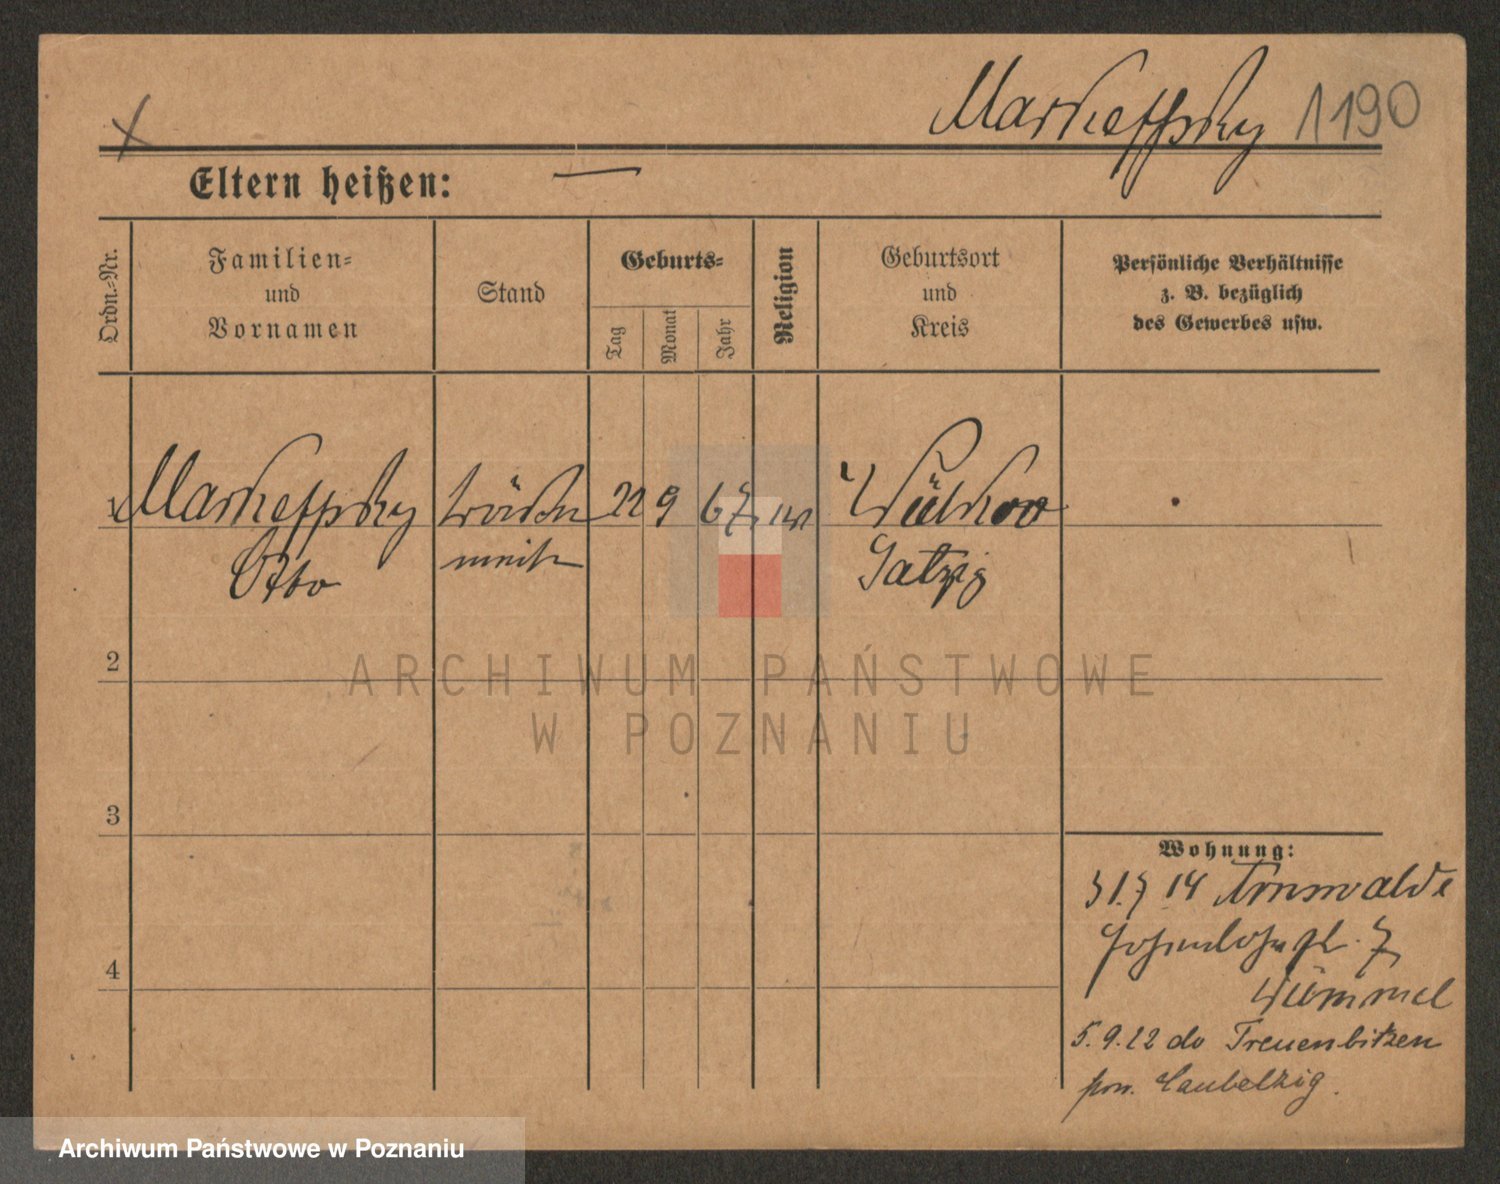 Markeffsky 1190
Eltern heißen: —
Ordn.-Nr.
Familien-
und
Vornamen
Stand
Geburts-
Tag
Monat
Jahr
Religion
Geburtsort
und
Kreis
Persönliche Verhältnisse
z. B. bezüglich
des Gewerbes usw.
1 Markeffsky 22 9 67
Otto
Satzig
2
3
4
Wohnung:
14 Arnswalde
7
Wümmel
5.9.12 do Treuenbitzen
Laubelzig.
ARCHIWUM PAŃSTWOWE
W POZNANIU
Archiwum Państwowe w Poznaniu